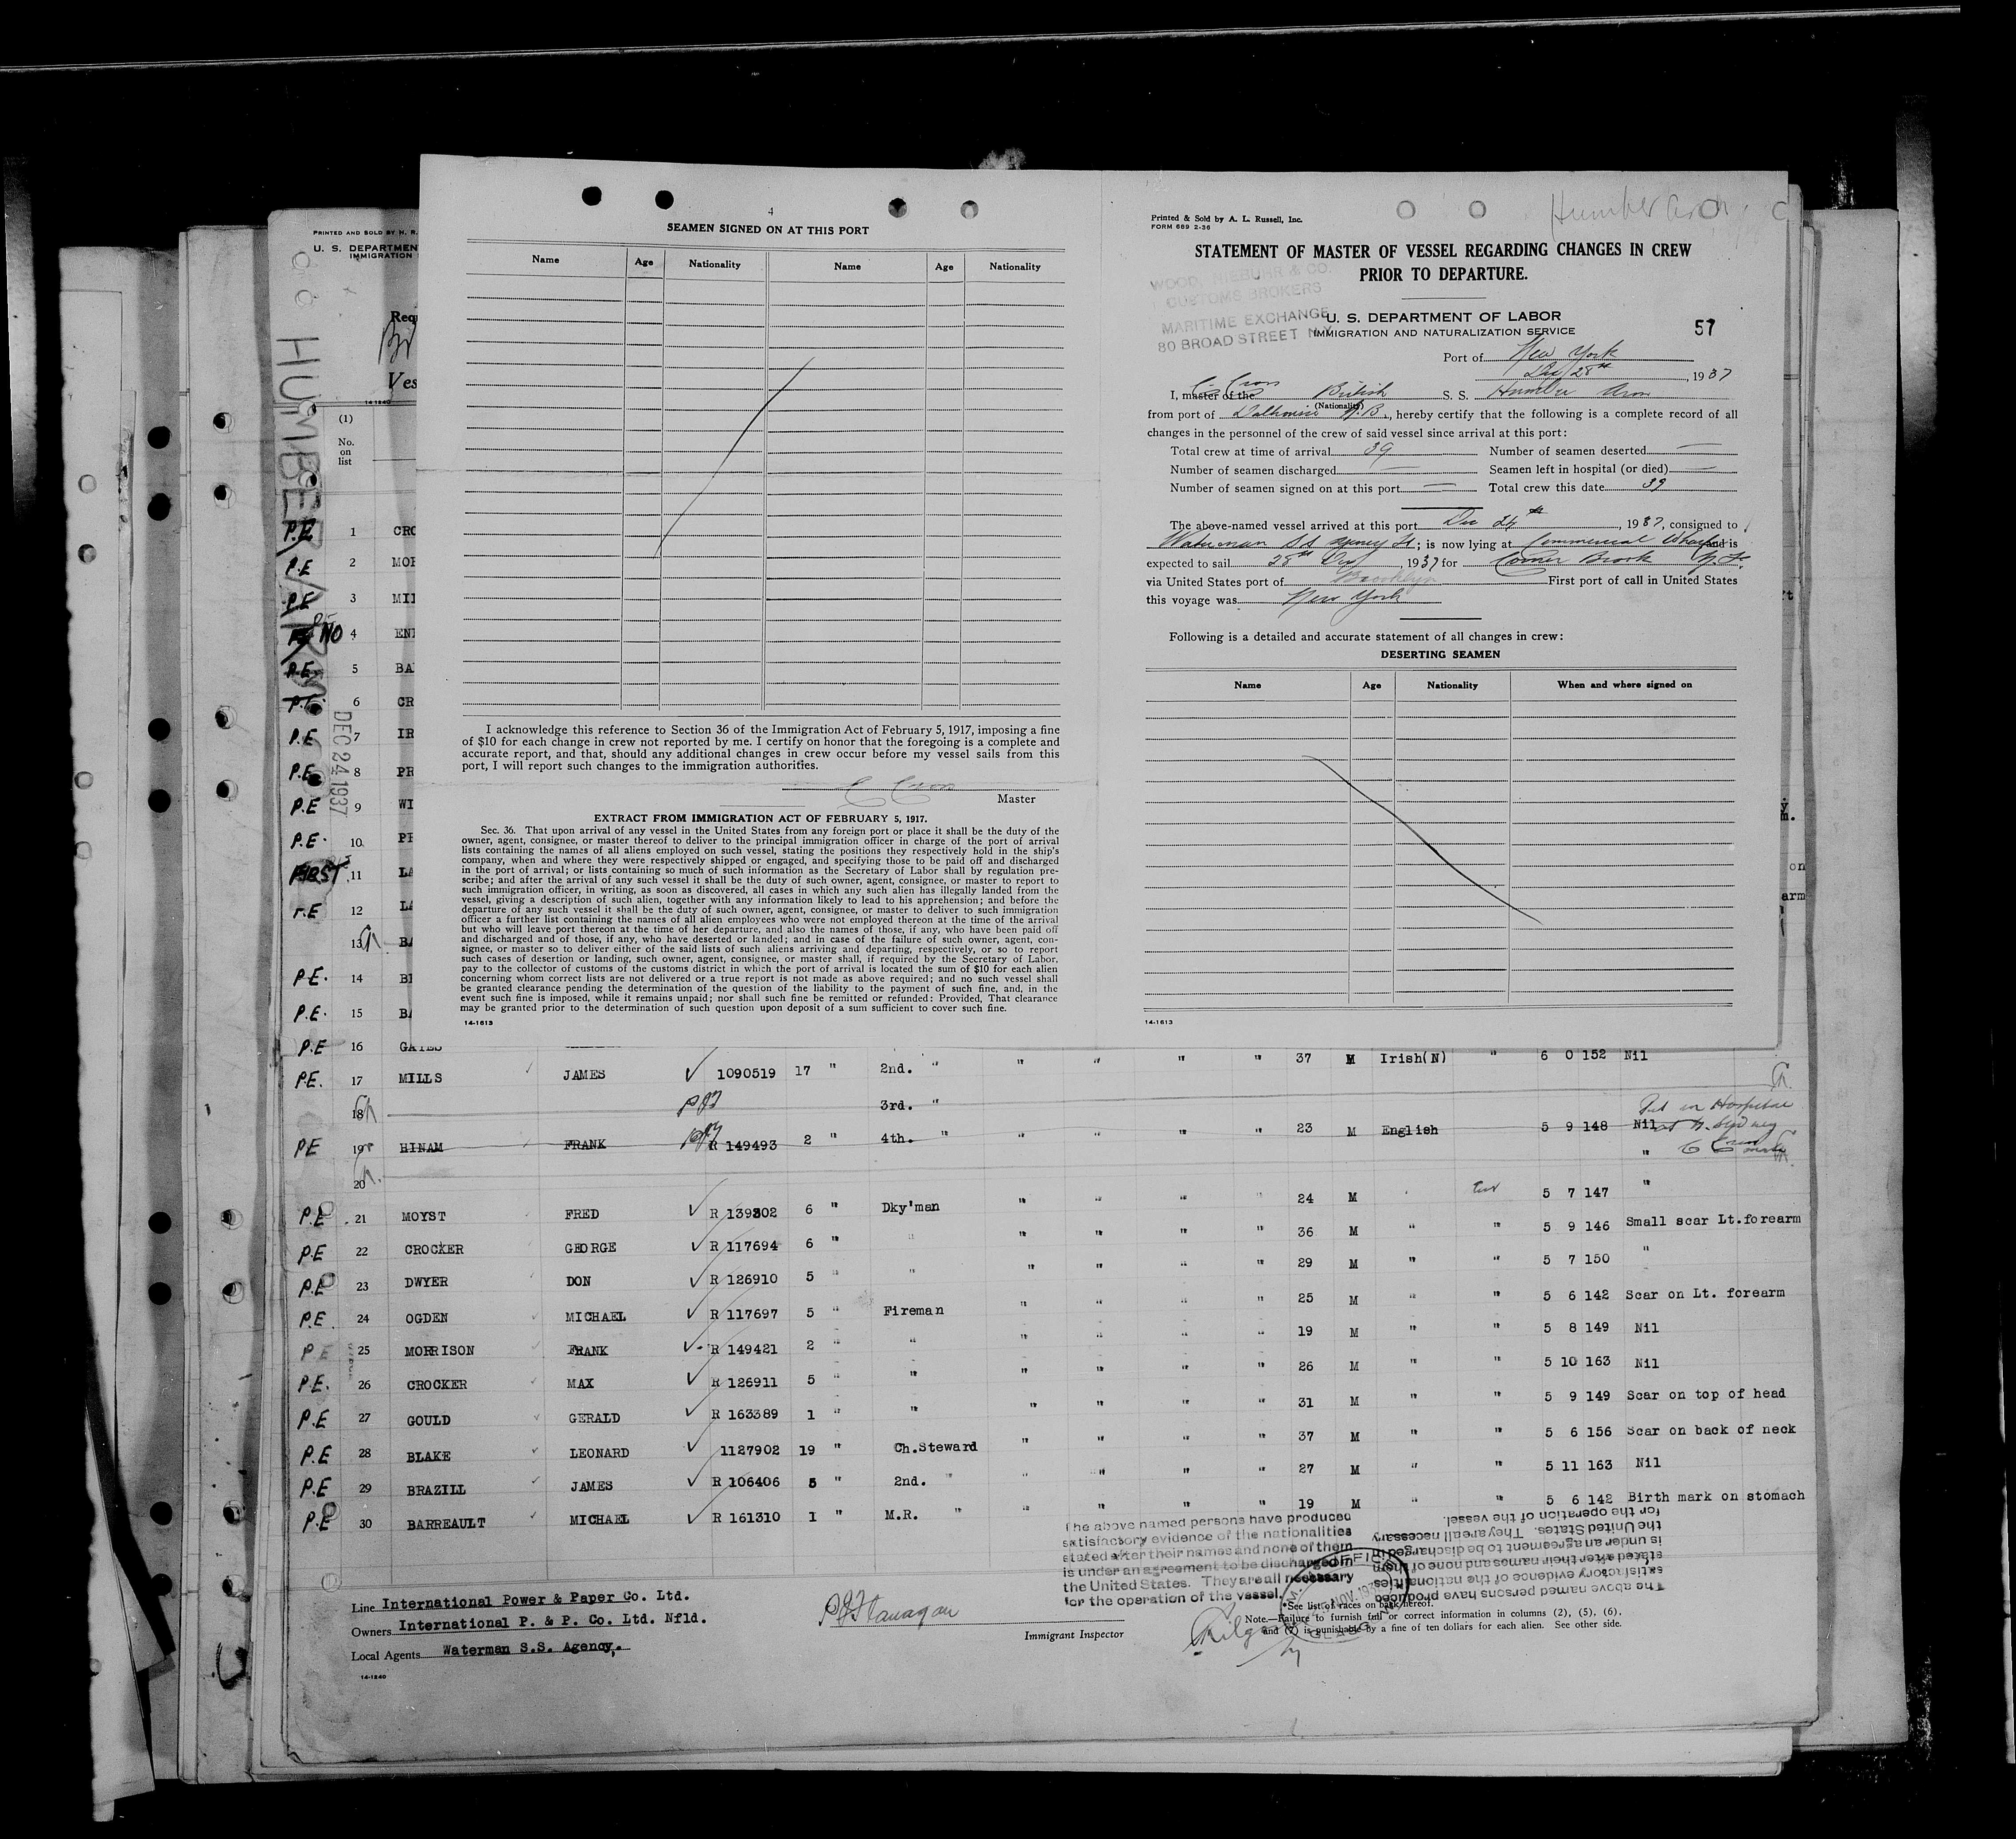 4
SEAMEN SIGNED ON AT THIS PORT
Name Age Nationality Name Age Nationality
I acknowledge this reference to Section 36 of the Immigration Act of February 5, 1917, imposing a fine
of $10 for each change in crew not reported by me. I certify on honor that the foregoing is a complete and
accurate report, and that, should any additional changes in crew occur before my vessel sails from this
port, I will report such changes to the immigration authorities.
C Cron
Master
EXTRACT FROM IMMIGRATION ACT OF FEBRUARY 5, 1917.
Sec. 36. That upon arrival of any vessel in the United States from any foreign port or place it shall be the duty of the
owner, agent, consignee, or master thereof to deliver to the principal immigration officer in charge of the port of arrival
lists containing the names of all aliens employed on such vessel, stating the positions they respectively hold in the ship's
company, when and where they were respectively shipped or engaged, and specifying those to be paid off and discharged
in the port of arrival; or lists containing so much of such information as the Secretary of Labor shall by regulation pre-
scribe; and after the arrival of any such vessel it shall be the duty of such owner, agent, consignee, or master to report to
such immigration officer, in writing, as soon as discovered, all cases in which any such alien has illegally landed from the
vessel, giving a description of such alien, together with any information likely to lead to his apprehension; and before the
departure of any such vessel it shall be the duty of such owner, agent, consignee, or master to deliver to such immigration
officer a further list containing the names of all alien employees who were not employed thereon at the time of the arrival
but who will leave port thereon at the time of her departure, and also the names of those, if any, who have been paid off
and discharged and of those, if any, who have deserted or landed; and in case of the failure of such owner, agent, con-
signee, or master so to deliver either of the said lists of such aliens arriving and departing, respectively, or so to report
such cases of desertion or landing, such owner, agent, consignee, or master shall, if required by the Secretary of Labor,
pay to the collector of customs of the customs district in which the port of arrival is located the sum of $10 for each alien
concerning whom correct lists are not delivered or a true report is not made as above required; and no such vessel shall
be granted clearance pending the determination of the question of the liability to the payment of such fine, and, in the
event such fine is imposed, while it remains unpaid; nor shall such fine be remitted or refunded: Provided, That clearance
may be granted prior to the determination of such question upon deposit of a sum sufficient to cover such fine.
14-1613
Humber Arm
Printed & Sold by A. L. Russell, Inc.
FORM 689 2-36
STATEMENT OF MASTER OF VESSEL REGARDING CHANGES IN CREW
PRIOR TO DEPARTURE.
WOOD, NIEBUHR & CO.
CUSTOMS BROKERS
MARITIME EXCHANGE
80 BROAD STREET N.Y.
U. S. DEPARTMENT OF LABOR
IMMIGRATION AND NATURALIZATION SERVICE
57
Port of New York
Dec 28th, 1937
I, C. Cron master of the British S. S. Humber Arm
(Nationality)
from port of Dalhousie N.B., hereby certify that the following is a complete record of all
changes in the personnel of the crew of said vessel since arrival at this port:
Total crew at time of arrival 39 Number of seamen deserted —
Number of seamen discharged — Seamen left in hospital (or died) —
Number of seamen signed on at this port — Total crew this date 39
The above-named vessel arrived at this port Dec 24th, 1937, consigned to
Waterman S.S. Agency Lt; is now lying at Commercial Wharf and is
expected to sail 28th Dec, 1937 for Corner Brook N.F.
via United States port of Brooklyn First port of call in United States
this voyage was New York
Following is a detailed and accurate statement of all changes in crew:
DESERTING SEAMEN
Name Age Nationality When and where signed on
14-1613
PRINTED AND SOLD BY H. R.
U. S. DEPARTMEN
IMMIGRATION
Requ
Br
Ves
14-1240
HUMBER ARM
DEC 24 1937
(1)
No.
on
list
P.E 1 CRO
P.E 2 MOR
P.E 3 MIL
NO 4 ENN
P.E. 5 BA
P.E. 6 CR
P.E 7 IR
P.E. 8 PR
P.E 9 WI
P.E. 10 PE
FIRST 11 LA
P.E 12 LA
13 BA
P.E. 14 BI
P.E. 15 BA
P.E 16 GATES
P.E. 17 MILLS JAMES 1090519 17 " 2nd. " " " " " 37 M Irish(N) " 6 0 152 Nil
18 3rd. "
PE 19 HINAM FRANK R 149493 2 " 4th. " " " " " 23 M English 5 9 148 Nil
Put in Hospital
at N. Sydney
C Cron
master
20
P.E 21 MOYST FRED R 139302 6 " Dky'man " " " " 24 M " " 5 7 147 "
P.E 22 CROCKER GEORGE R 117694 6 " " " " " " 36 M " " 5 9 146 Small scar Lt.forearm
P.E 23 DWYER DON R 126910 5 " " " " " " 29 M " " 5 7 150 "
P.E. 24 OGDEN MICHAEL R 117697 5 " Fireman " " " " 25 M " " 5 6 142 Scar on Lt. forearm
P.E 25 MORRISON FRANK R 149421 2 " " " " " " 19 M " " 5 8 149 Nil
P.E. 26 CROCKER MAX R 126911 5 " " " " " " 26 M " " 5 10 163 Nil
P.E 27 GOULD GERALD R 163389 1 " " " " " " 31 M " " 5 9 149 Scar on top of head
P.E 28 BLAKE LEONARD 1127902 19 " Ch.Steward " " " " 37 M " " 5 6 156 Scar on back of neck
P.E 29 BRAZILL JAMES R 106406 5 " 2nd. " " " " " 27 M " " 5 11 163 Nil
P.E 30 BARREAULT MICHAEL R 161310 1 " M.R. " " " " " 19 M " " 5 6 142 Birth mark on stomach
The above named persons have produced
satisfactory evidence of the nationalities
stated after their names and none of them
is under an agreement to be discharged in
the United States. They are all necessary
for the operation of the vessel.
The above named persons have produced
satisfactory evidence of the nationalities
stated after their names and none of them
is under an agreement to be discharged in
the United States. They are all necessary
for the operation of the vessel.
Line International Power & Paper Co. Ltd.
Owners International P. & P. Co. Ltd. Nfld.
Local Agents Waterman S.S. Agency,
14-1240
P J Flanagan
Immigrant Inspector
*See list of races on back hereof.
Note.—Failure to furnish full or correct information in columns (2), (5), (6),
and (7) is punishable by a fine of ten dollars for each alien. See other side.